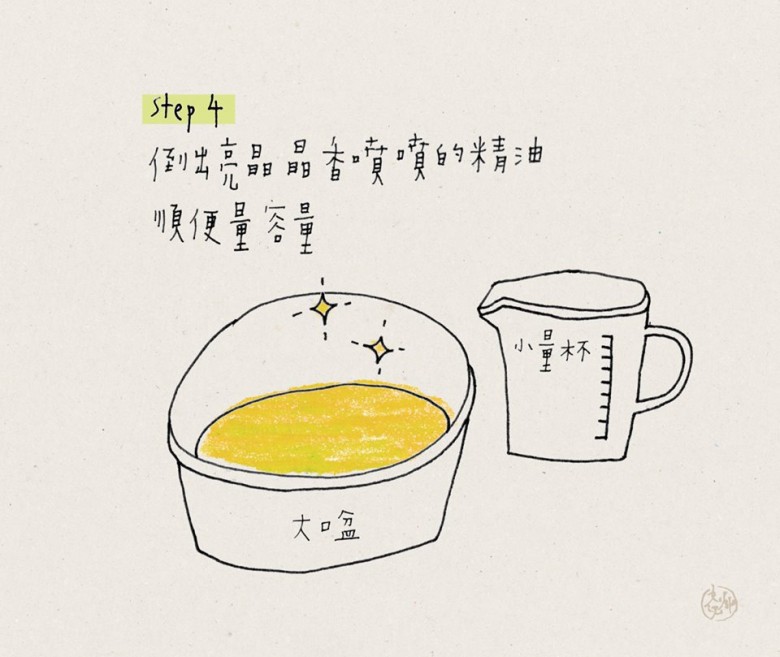 Step 4
倒出亮晶晶香噴噴的精油
順便量容量
小量杯
大口盆